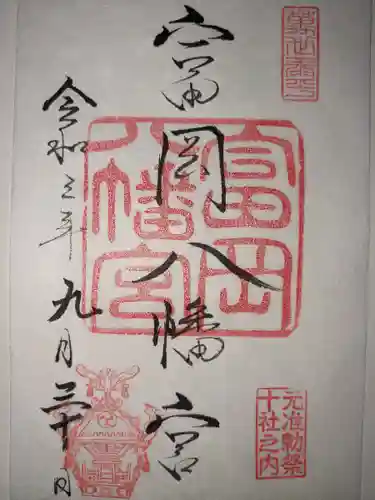 富岡八幡宮
富岡
八幡宮
元准勅祭
十社之内
令和三年九月三十日